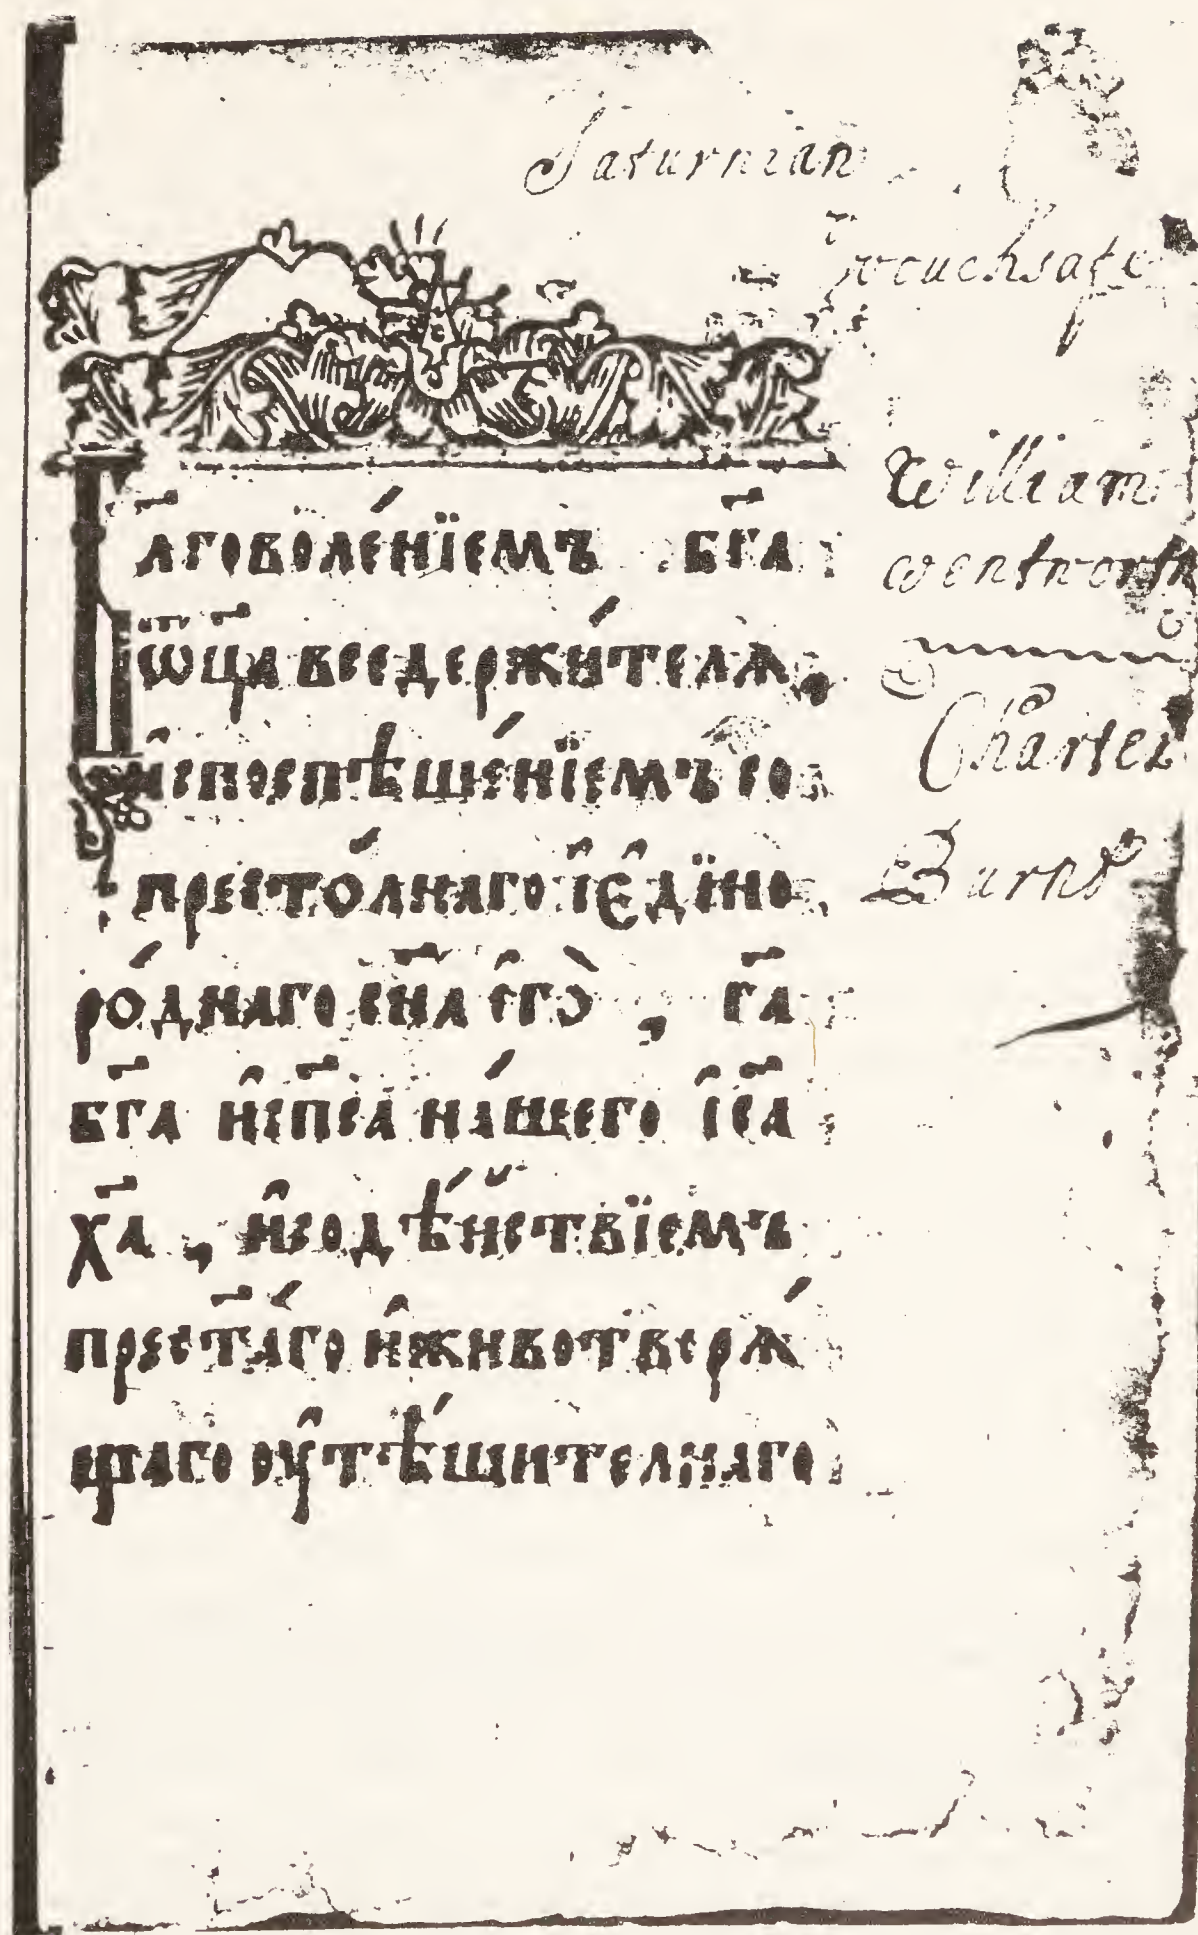 Saturnian
vouchsafe
William
wentworth
Charter
Burnd
Бл҃говоле́нїемъ бг҃а
ѿц҃а вседержи́телѧ,
и҆споспѣше́нїемъ со
престо́лнаго і҆є҆дїно
ро́днаго сн҃а є҆гѡ̀, гд҃а
бг҃а и҆сп҃са на́шего і҆с҃а
х҃а, и҆содѣ́йствїемъ
прест҃а́го и҆животворѧ́
щаго оу҆тѣ́шителнаго